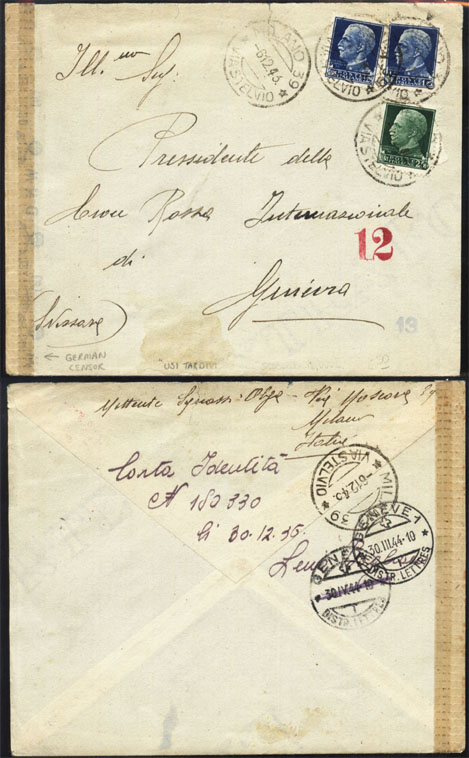 MILANO 39
-6.12.43.
VIA STELVIO
Ill.mo Sig:
Pressidente della
Croce Rossa Internazionale
di
Ginevra
(Svissera)
12
13
← GERMAN
CENSOR
USI TARDIVI
Mittente Olga - Via Moscova
Milano
Italia
MILANO 39
-6.12.43.
VIA STELVIO
Carta Identità
N 180 330
li 30.12.35
GENÈVE 1
30.III.44-10
DISTR. LETTRES
GENÈVE 1
30.IV.44-10
DISTR. LETTRES